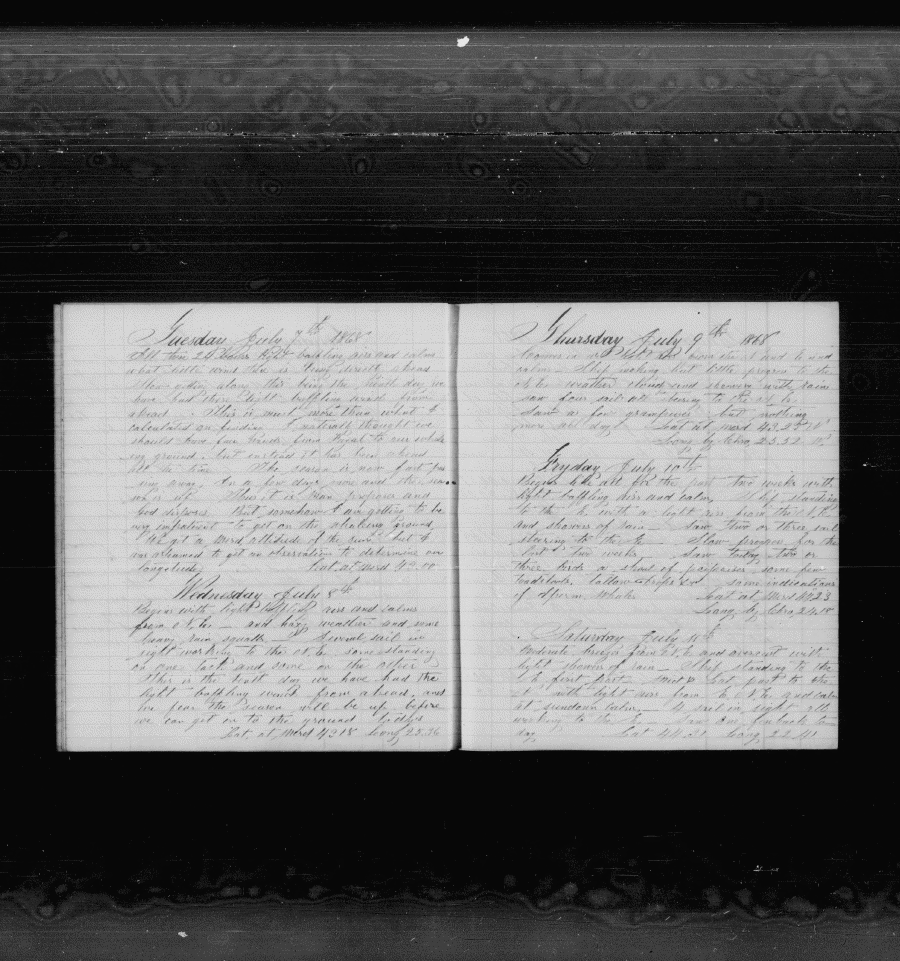 Tuesday July 7th 1868
All these 24 hours light baffling airs and calms
what little wind there is being directly ahead
Slow getting along this being the ninth day we
have had these light baffling winds from
ahead. This is much more than what I
calculated on finding I naturally thought we
should have fair winds from Fayal to our whale
ing ground. but instead it has been ahead
all the time. The season is now fast pas
sing away. In a few days more and the sea
son is up. Thus it is Man proposes and
God disposes. But somehow I am getting to be
very impatient to get on the whaling ground
We got a merd altitude of the sun. but
was ashamed to get an observation to determine our
longitude. Lat at merd 43.00
Wednesday July 8th
Begins with light airs and calms
from N.E. and hazy weather and some
heavy rain squalls. Several sail in
sight working to the N.E. some standing
on one tack and some on the other
This is the tenth day we have had the
light baffling winds from ahead, and
we fear the season will be up before
we can get on to the ground
Lat at Merd 43.18 Long 25.36
Thursday July 9th 1868
from the N and E. and
calms. Ship making but little progress to the
N.E. weather cloudy and showery with rain
saw four sail all steering to the N.E.
Saw a few grampuses but nothing
more all day. Lat at merd 43.25 N
Long by Chro 25.22 W
Fryday July 10th
Begins like all for the past two weeks with
light baffling airs and calm, Ship standing
to the E. with a light airs from the N.E.
and showers of rain Saw two or three sail
steering to the E. Slow progress for the
last two weeks. Saw today two or
three birds a shoal of porpoises some few
some indications
of Sperm Whale Lat at Merd 43.23
Long by Chro 24.18
Saturday July 11th
Moderate breezes from N.E. and overcast with
light shower of rain Ship standing to the
E. first part last part to the
N. with light airs from E.N.E. and calm
at sundown calm. 4 sail in sight all
working to the E. Saw one finback to
day Lat 44.21 Long 22.41